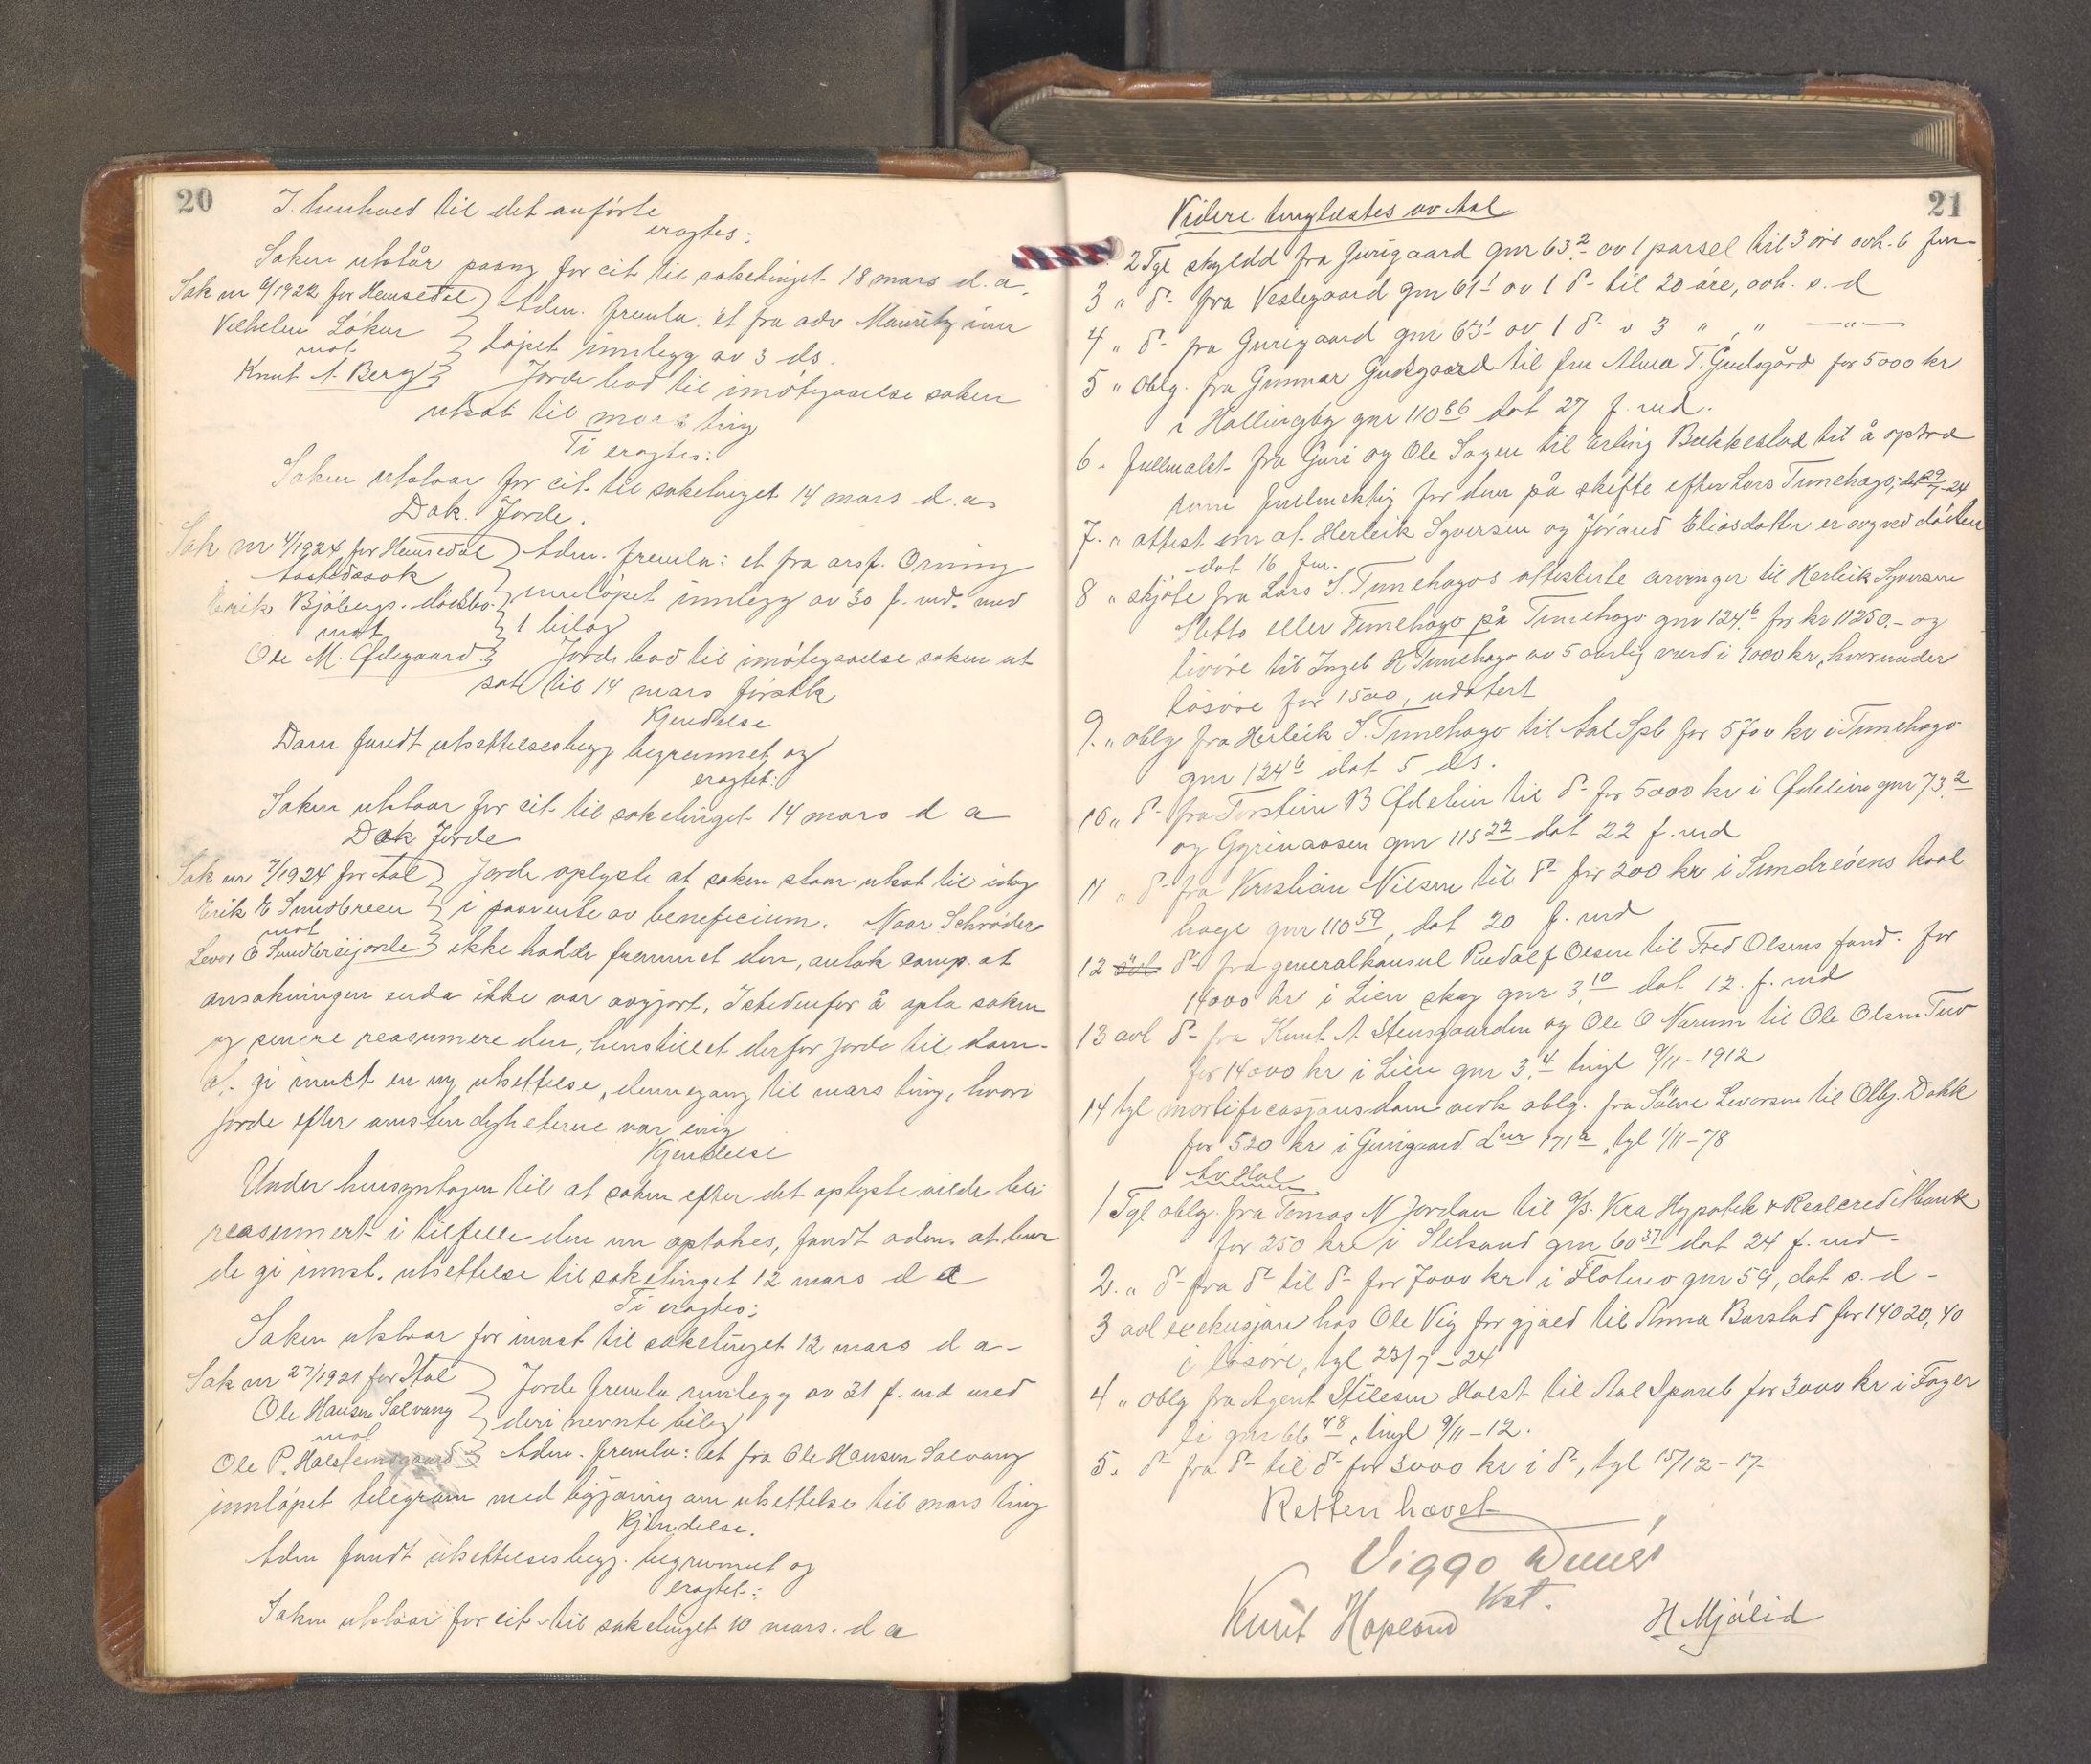 20
I. henhved til det anförte
eragtes:
Saken utstår paany for cit til saketinget 18 mars d. a.
Sak nr 6/1922 for Hemsedal
Vilhelm Löken
mot
Knut A. Berg
Adm. fremla: et fra adv Mauritz inn
löpet innlegg av 3 ds.
Jorde bad til imötegaaelse saken
utsat til mars ting
Ti eragtes:
Saken utstaar for cit. til saketinget 14 mars d. a
Dok. Jorde.
Sak nr 4/1924 for Hemsedal
Aastedssak
Eirik Bjöbergs. dödsbo.
mot
Ole M. Ødegaard
Adm. fremla: et fra orsf. Orning
innlöpet innlegg av 30 f. md. med
1 bilag
Jorde bad til imötegaaelse saken ut
sat til 14 mars förstk
Kjendelse
Dom fandt utsettelsesbegj begrunnet og
eragtet:
Saken utstaar for cit til saketinget 14 mars d a
Dok Jorde
Sak nr 7/1924 for Aal
Eirik E Sundbreen
mot
Levor E Sundbreijorde
Jorde oplyste at saken staar utsat til idag
i paavente av beneficium. Naar Schröder
ikke hadde fremmet den, antok comp. at
ansøkningen enda ikke var avgjort. Istedenfor å opta saken
og senere reasumere den, henstillet derfor Jorde til dom-
at gi innst en ny utsettelse, dennegang til mars ting, hvori
Jorde efter omstendigheterne var enig
Kjendelse
Under hensyntagen til at saken efter det oplyste vilde bli
reasumert i tilfelle den nu optokes, fandt adm. at bur
de gi innst. utsettelse til saketinget 12 mars d a
Ti eragtes:
Saken utstaar for innst til saketinget 12 mars d a-
Sak nr 27/1921 for Aal
Ole Hansen Solvang
mot
Ole P. Holstensgaard
Jorde fremla innlegg av 31 f. md med
deri nevnte bilag
Adm. fremla: et fra Ole Hansen Solvang
innlöpet telegram med begjæring om utsettelse til mars ting
Kjendelse.
Adm fandt utsettelsesbegj. begrunnet og
eragtet:
Saken utstaar for cit. til saketinget 10 mars. d a
21
Videre tinglæstes av Aal
2 Tgl skyldd fra Gurigaard gnr 63.2 av 1 parsel til 3 øre avh. 6 jan-
3 " d- fra Veslegaard gnr 61.1 av 1 d- til 20 øre, avh. s. d
4 " d- fra Gurigaard gnr 63.1 av 1 d- " 3 " , " —"—
5 " oblg. fra Gunnar Gudsgaard til fru Alma T. Gudsgård for 5000 kr
i Hallingby gnr 110 86 dat 27 f. md.
6 " fullmakt fra Guri og Ole Sagen til Erling Bekkestad til å optræ
som fullmektig for dem på skifte efter Lars Tunehago, dat 29/7-24
7. " attest om at Herleik Syversen og Jöraud Eliasdatter er avgved döden
dat 16 jan.
8 " skjöte fra Lars S. Tunehagos attesterte arvinger til Herleik Syversen
Sletto eller Tunehago på Tunehago gnr 124.6 for kr 11250.- og
livöre til Ingeb H Tunehago av 5 aarlig værdi 1000 kr, hvorunder
lösöre for 1500, udatert
9. " oblg fra Herleik S. Tunehago til Aal Spb for 5700 kr i Tunehago
gnr 124 6 dat 5 ds.
10 " d- fra Torstein B Ødelien til d- for 5000 kr i Ødelien gnr 73.2
og Gyrinaasen gnr 115 22 dat 22 f. md
11 " d- fra Kristian Nilsen til d- for 200 kr i Sundreöens kaal
hage gnr 110 59, dat 20 f. md
12 d- fra generalkonsul Rudolf Olsen til Fred Olsens fond. for
14000 kr i Lien skog gnr 3.10 dat 12. f. md
13 avl d- fra Knut A Stensgaarden og Ole O Narum til Ole Olsen Tuv
for 14000 kr i Lien gnr 3.4 tingl 9/11-1912
14 tgl mortificasjonsdom vedk oblg. fra Sölve Leversen til Olbj. Dokk
for 520 kr i Gurigaard Lnr 171a, tgl 1/11-78
Av Hol
1 Tgl oblg. fra Tomas N Jordan til A/S. Kra Hypotek & Realcreditbank
for 250 kr i Sletsand gnr 60 37 dat 24 f. md-
2. " d- fra d- til d- for 7000 kr i Flotuno gnr 59, dat s. d-
3 avl exekusjon hos Ole Vig for gjæld til Anna Barstad for 14020,40
i lösöre, tgl 23/7-24
4 " oblg fra Agent Stilesen Holst til Aal Spareb for 3000 kr i Fager
li gnr 66 48, tingl 9/11-12.
5. d- fra d- til d- for 3000 kr i d-, tgl 15/12-17-
Retten hævet
Viggo
Kst.
Knut Hopland
H Mjålid